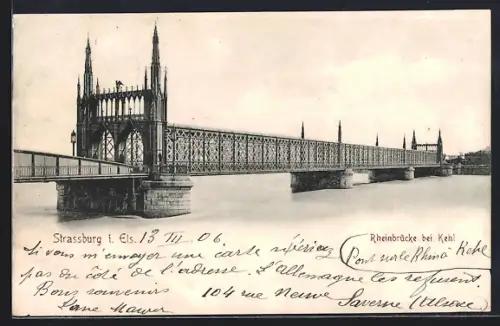 Strassburg i. Els. 13 III 06
Rheinbrücke bei Kehl
(Pont sur le Rhin à Kehl
Si vous m'envoyer une carte
pas du côté de l'adresse. L'Allemagne les refusent.
Bons souvenirs 104 rue Neuve Saverne (Alsace)